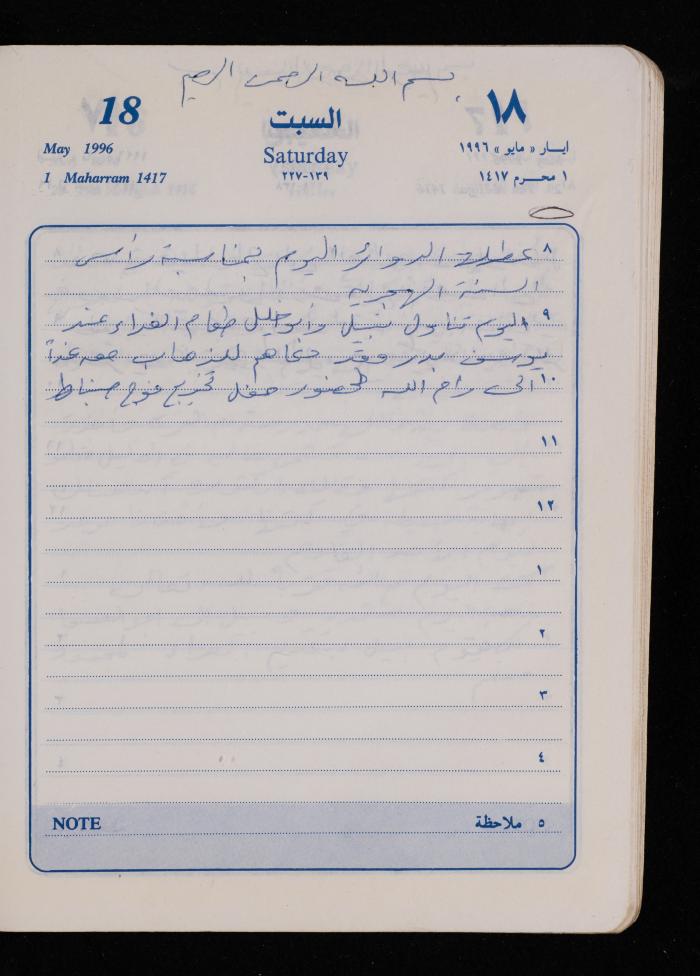 بسم الله الرحمن الرحيم
18 السبت ١٨
May 1996 Saturday ايار « مايو » ١٩٩٦
1 Maharram 1417 ١٣٩-٢٢٧ ١ محرم ١٤١٧
٨ عطلت الدوائر اليوم بمناسبة رأس
السنة الهجرية
٩ اليوم تناول نبيل وأبو خليل طعام الغداء عند
يوسف بدر وقد دعاهم للذهاب معه غداً
١٠ الى رام الله لحضور حفل تخريج فوج ضباط
١١
١٢
١
٢
٣
٤
NOTE ٥ ملاحظة